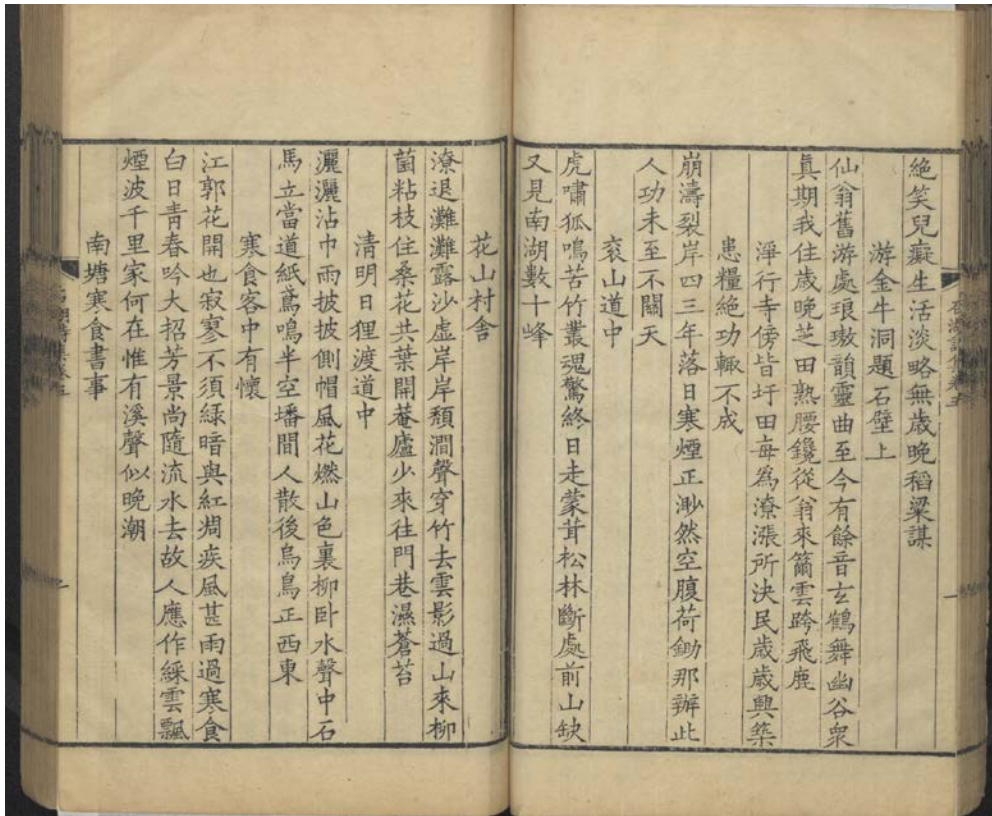 絶笑兒癡生活淡略無歲晚稻粱謀
游金牛洞題石壁上
仙翁舊游處琅璈韻靈曲至今有餘音玄鶴舞幽谷衆
真期我住歲晚芝田熟腰鑱從翁來籋雲跨飛鹿
淨行寺傍皆圩田每為潦漲所決民歲歲興築
患糧絶功輒不成
崩濤裂岸四三年落日寒煙正渺然空腹荷鋤那辦此
人功未至不關天
衮山道中
虎嘯狐鳴苦竹叢魂驚終日走蒙茸松林斷處前山缺
又見南湖數十峰
花山村舍
潦退灘灘露沙虛岸岸頹澗聲穿竹去雲影過山來柳
菌粘枝住桑花共葉開菴廬少來往門巷濕蒼苔
清明日狸渡道中
灑灑沾巾雨披披側帽風花燃山色裏柳卧水聲中石
馬立當道紙鳶鳴半空墦間人散後烏鳥正西東
寒食客中有懷
江郭花開也寂寥不須緑暗與紅凋疾風甚雨過寒食
白日青春吟大招芳景尚隨流水去故人應作綵雲飄
煙波千里家何在惟有溪聲似晚潮
南塘寒食書事